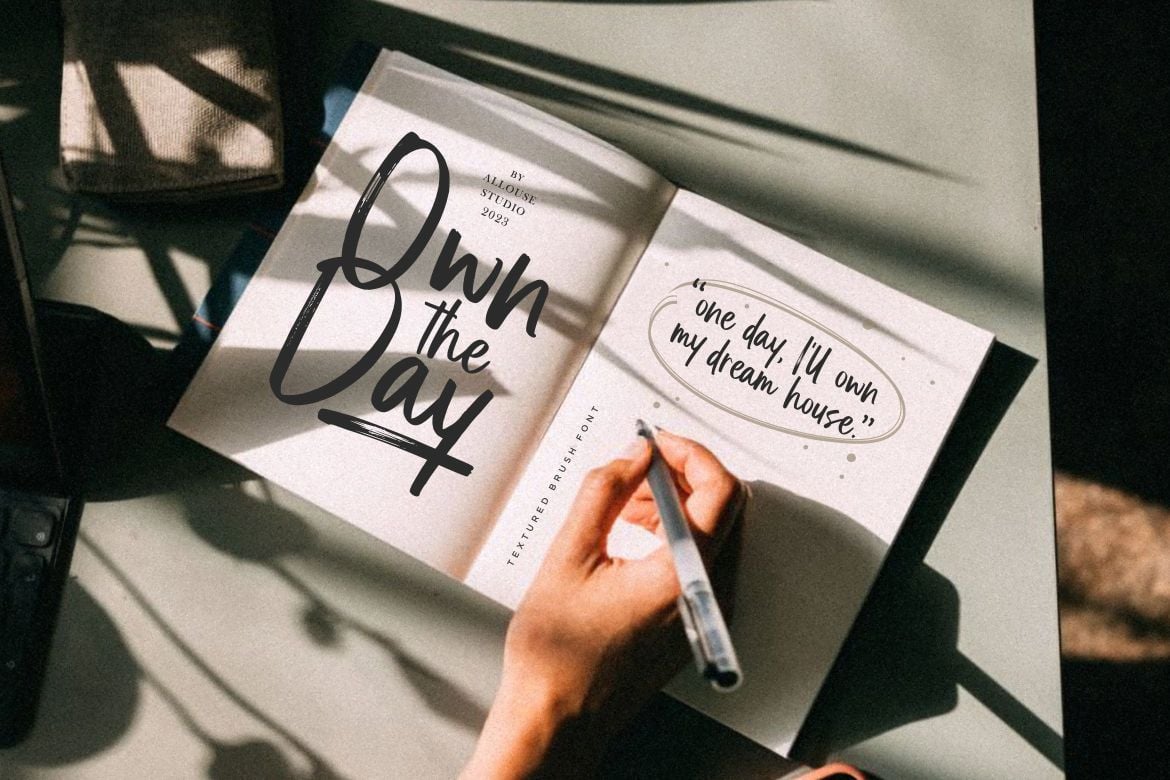 Own
the
Day
BY
ALLOUSE
STUDIO
2023
TEXTURED BRUSH FONT
“one day, I'll own
my dream house.”